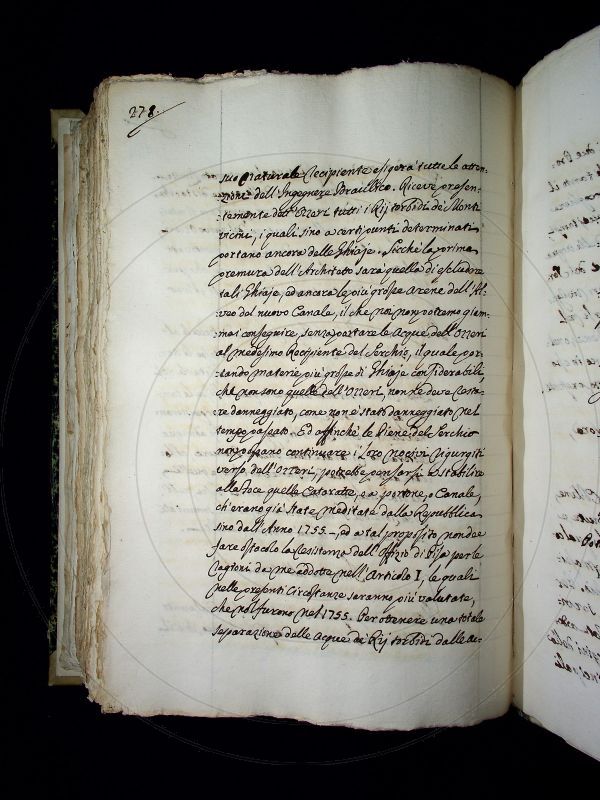 278.
suo naturale Recipiente esigerà tutte le atten-
zioni dell'Ingegnere Idraulico. Riceve presen-
temente dall'Ozzeri tutti i Rij torbidi de Monti
vicini, i quali sino a certi punti determinati
portano ancora delle Ghiaje. Perchè la prima
premura dell'Architetto sarà quella di escludere
tali Ghiaje, ed ancora le più grosse Arene dall'Al-
veo del nuovo Canale, il che noi non potremo giam-
mai conseguire, senza portare le Acque dell'Ozzeri
al medesimo Recipiente del Serchio, il quale por-
tando materie più grosse di Ghiaje considerabili,
che non sono quelle dell'Ozzeri, non ne deve resta-
re danneggiato, come non è stato danneggiato nel
tempo passato. Ed affinchè le Piene del Serchio
non possano continuare i loro nocivi rigurgiti
verso dell'Ozzeri, potrebbe pensarsi a stabilire
alla Foce quelle Cataratte, e a portone, o Canale,
ch'erano già state meditate dalla Repubblica
sino dall'Anno 1755 - ed a tal proposito non dee
fare ostacolo la resistenza dell'Offizio di Pisa per le
ragioni da me addotte nell'Articolo I, le quali
nelle presenti Circostanze saranno più valutate,
che nol furono nel 1755. Per ottenere una totale
separazione delle Acque de Rij torbidi dalle ac-